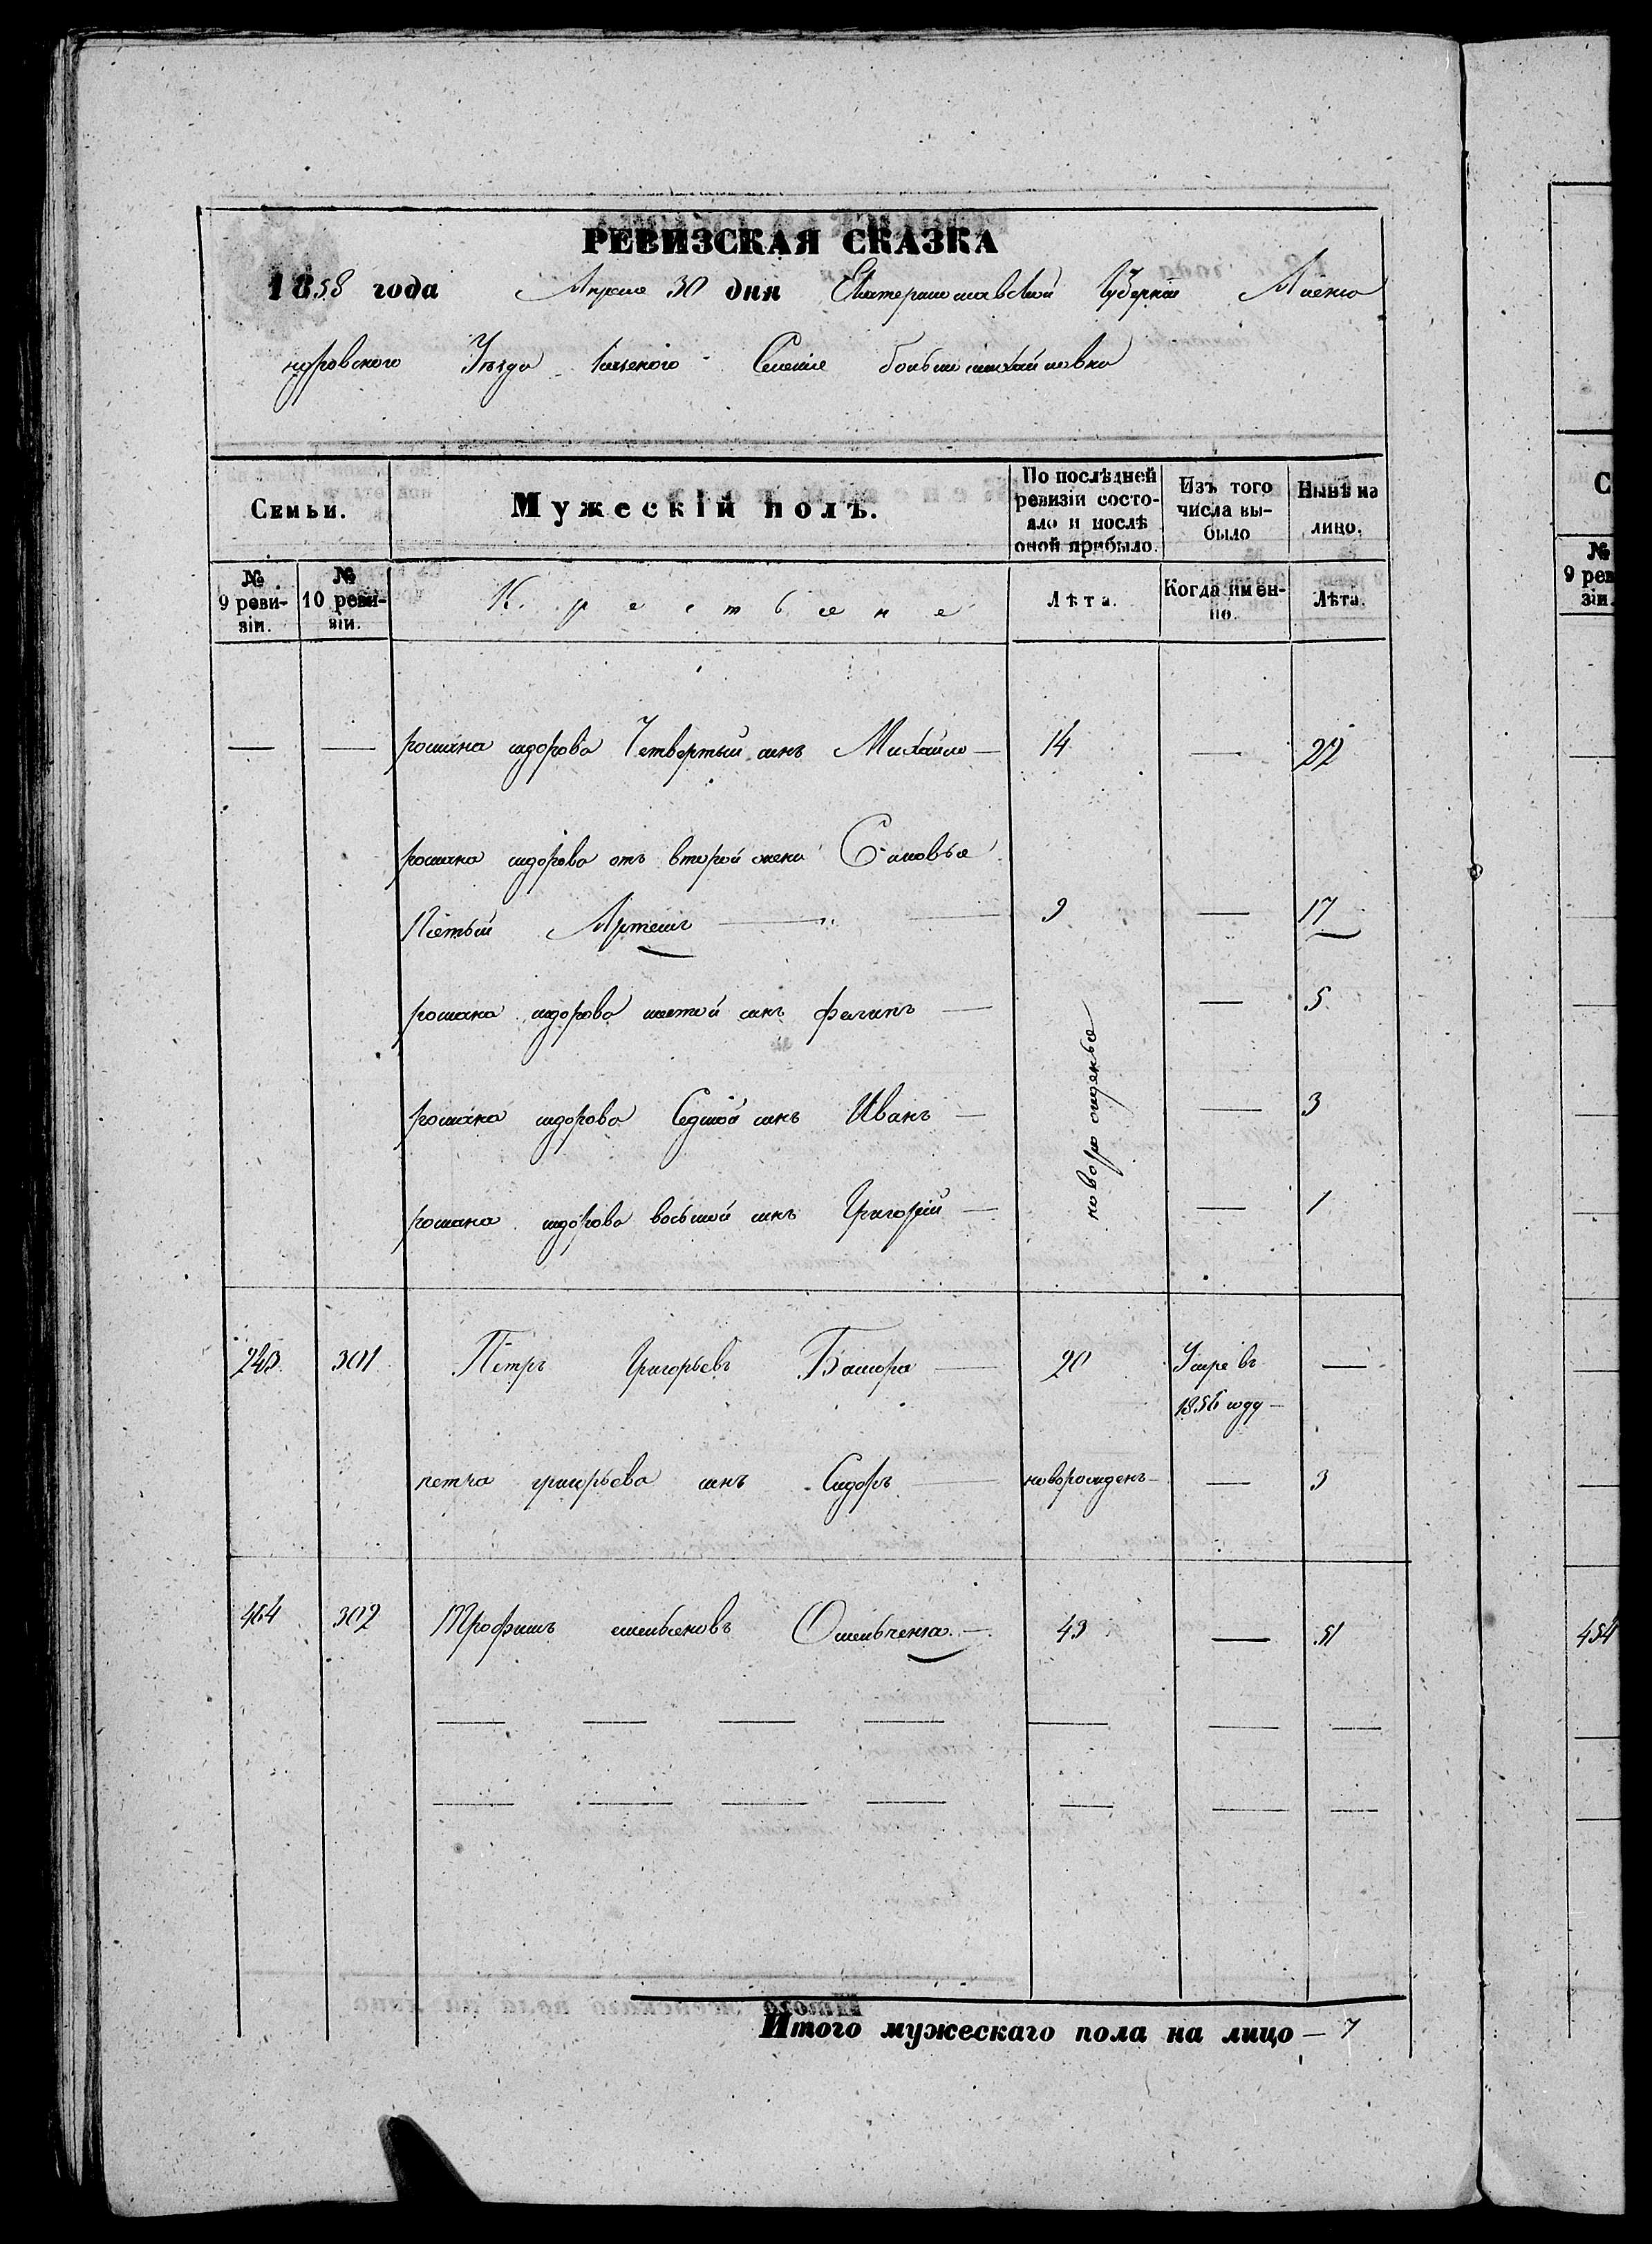 РЕВИЗСКАЯ СКАЗКА
1858 года Апреля 30 дня Екатеринославской Губерніи Алекса
ндровского Уезда Селеніе большемихайловка
Семьи.
Мужескій полъ.
По послѣдней ревизіи состо-
яло и послѣ
оной прибыло.
Изъ того
числа вы-
было
Нынѣ на
лицо.
№
9 реви-
зіи.
№
10 реви-
зіи.
Крестьяне
Лѣта.
Когда имен-
но.
Лѣта.
— — романа сидорова Четвертый синъ Михайло — 14 — 22
романа сидорова отъ второй жены Сыновья
Пятый Артемъ — 9 — 17
романа сидорова шестой синъ филипъ — — 5
романа сидорова Седмой синъ Иванъ — — 3
романа сидорова восьмой синъ Григорій — — 1
новорожденые
243 301 Петръ Григорьевъ Башора — 20 Умре въ —
1856 году —
петра григорьева синъ Сидоръ — новорожденъ — — 3
464 302 Трофимъ емельеновъ Омельченко — 43 — 51
Итого мужескаго пола на лицо — 7
С
№
9 рев
зіи.
454